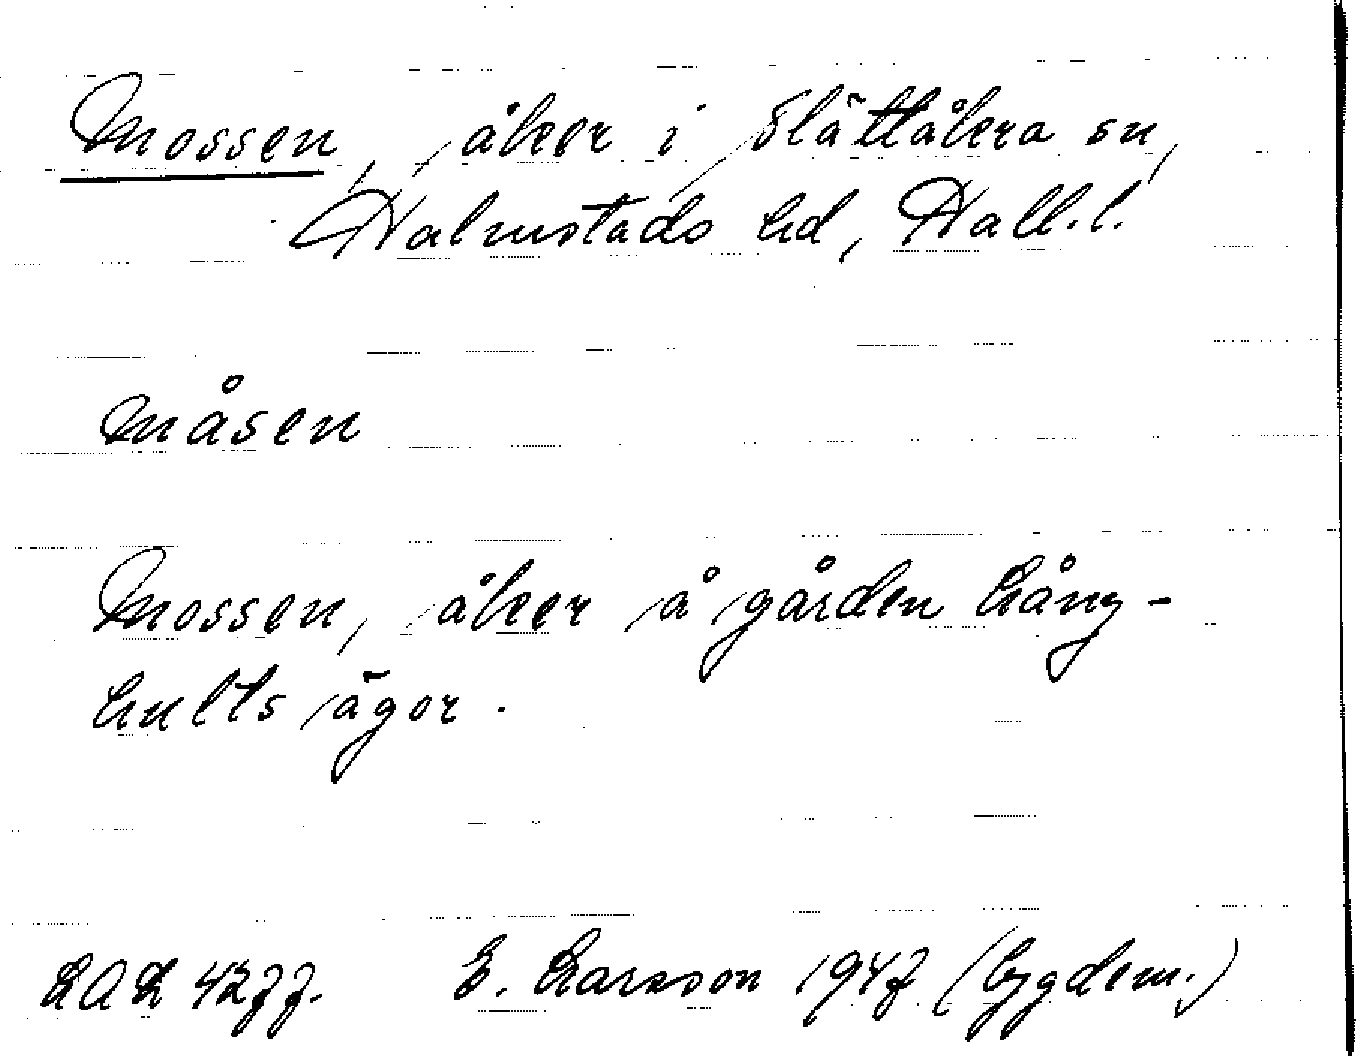 Mossen, åker i Slättåkra sn,
Halmstads hd, Hall.l.
måsen
Mossen, åker å gården Lång-
hults ägor.
LAL 4277. E. Larsson 1947 (bygdem.)